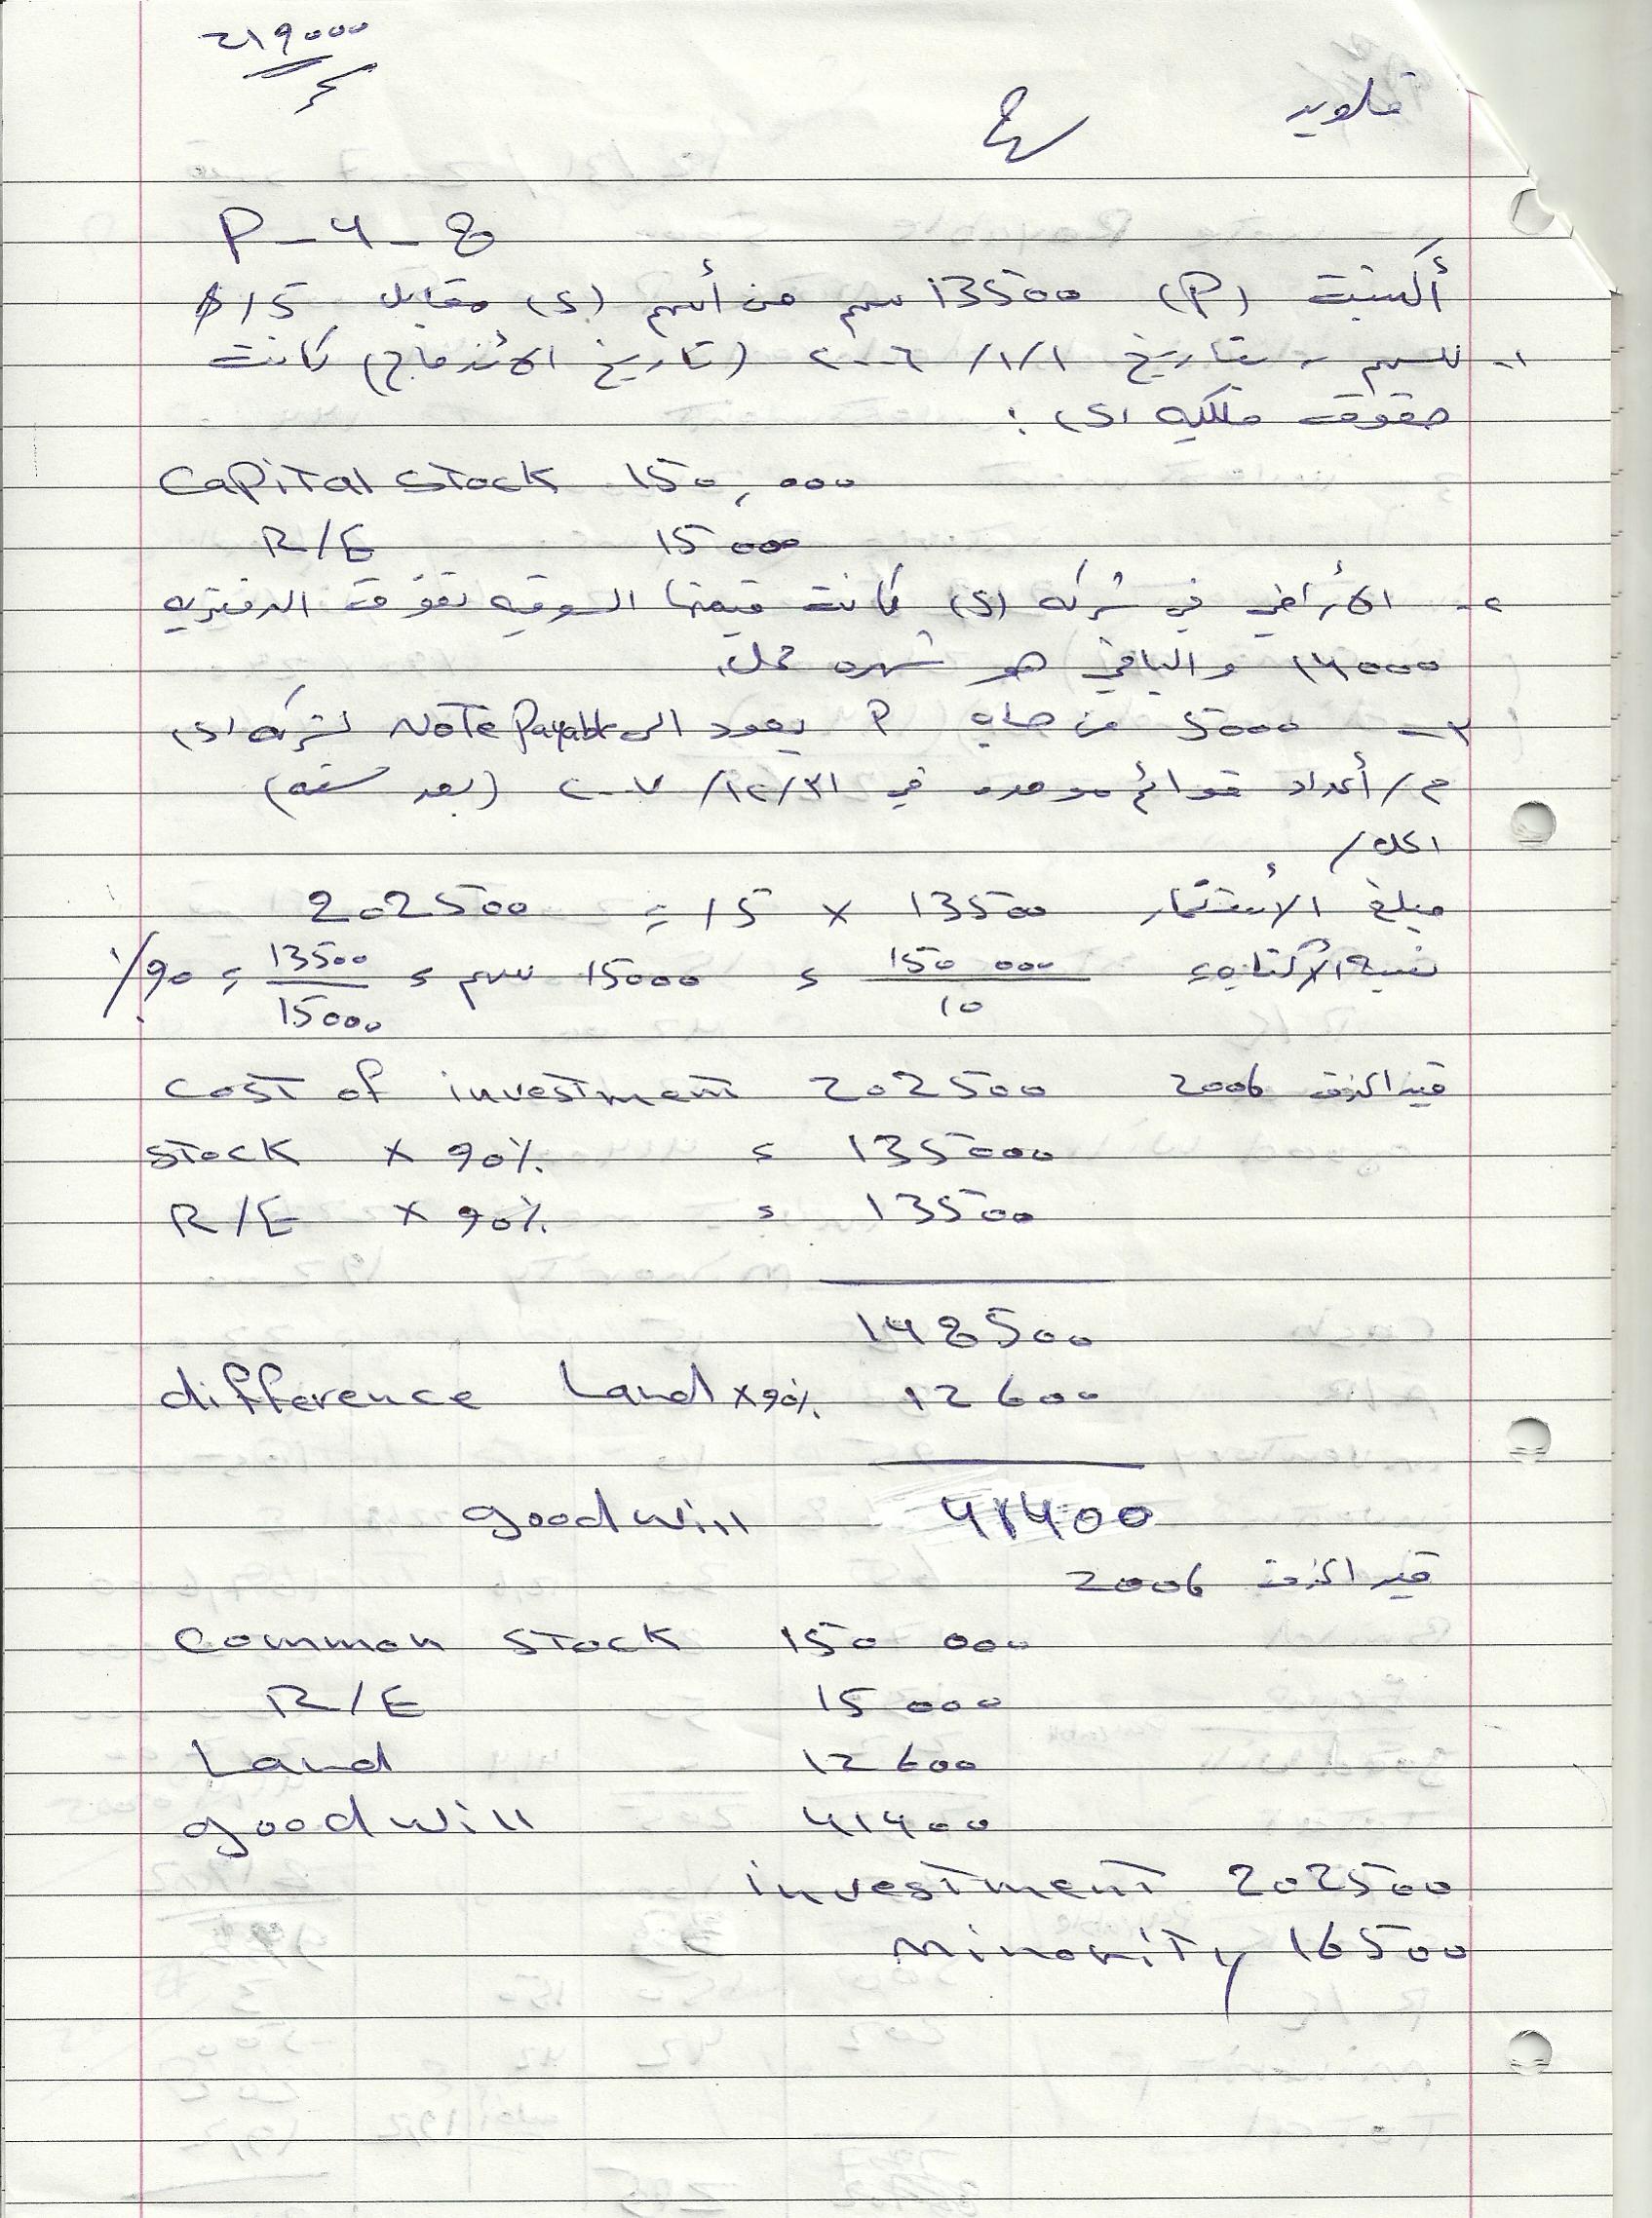 ٢١٩٠٠٠
P-4-8
أكتسبت (P) 13500 سهم من أسهم (S) مقابل 15$
١- للسهم بتاريخ ١/١/ ٢٠٠٦ (تاريخ الأندماج) كانت
حقوق ملكيه (S) :
Capital Stock 150,000
R/E 15000
٢- الأراضي في شركه (S) كانت قيمتها السوقيه تفوق الدفتريه
14000 والباقي هو شهره محل.
٣- 5000 من حساب P يعود الى Note Payable لشركه (S)
م/ أعداد قوائم موحده في ٣١/١٢/ ٢٠٠٧ (بعد سنه)
الحل/
مبلغ الأستثمار 13500 × 15 = 202500
نسبة الأكتتاب = 150 000 / 10 = 15000 سهم = 13500 / 15000 = 90%
قيد الحذف 2006
Cost of investment 202500
Stock × 90% = 135000
R/E × 90% = 13500
148500
difference Land ×90% 12600
goodwill 41400
قيد الحذف 2006
Common Stock 150 000
R/E 15 000
Land 12600
goodwill 41400
investment 202500
Minority 16500